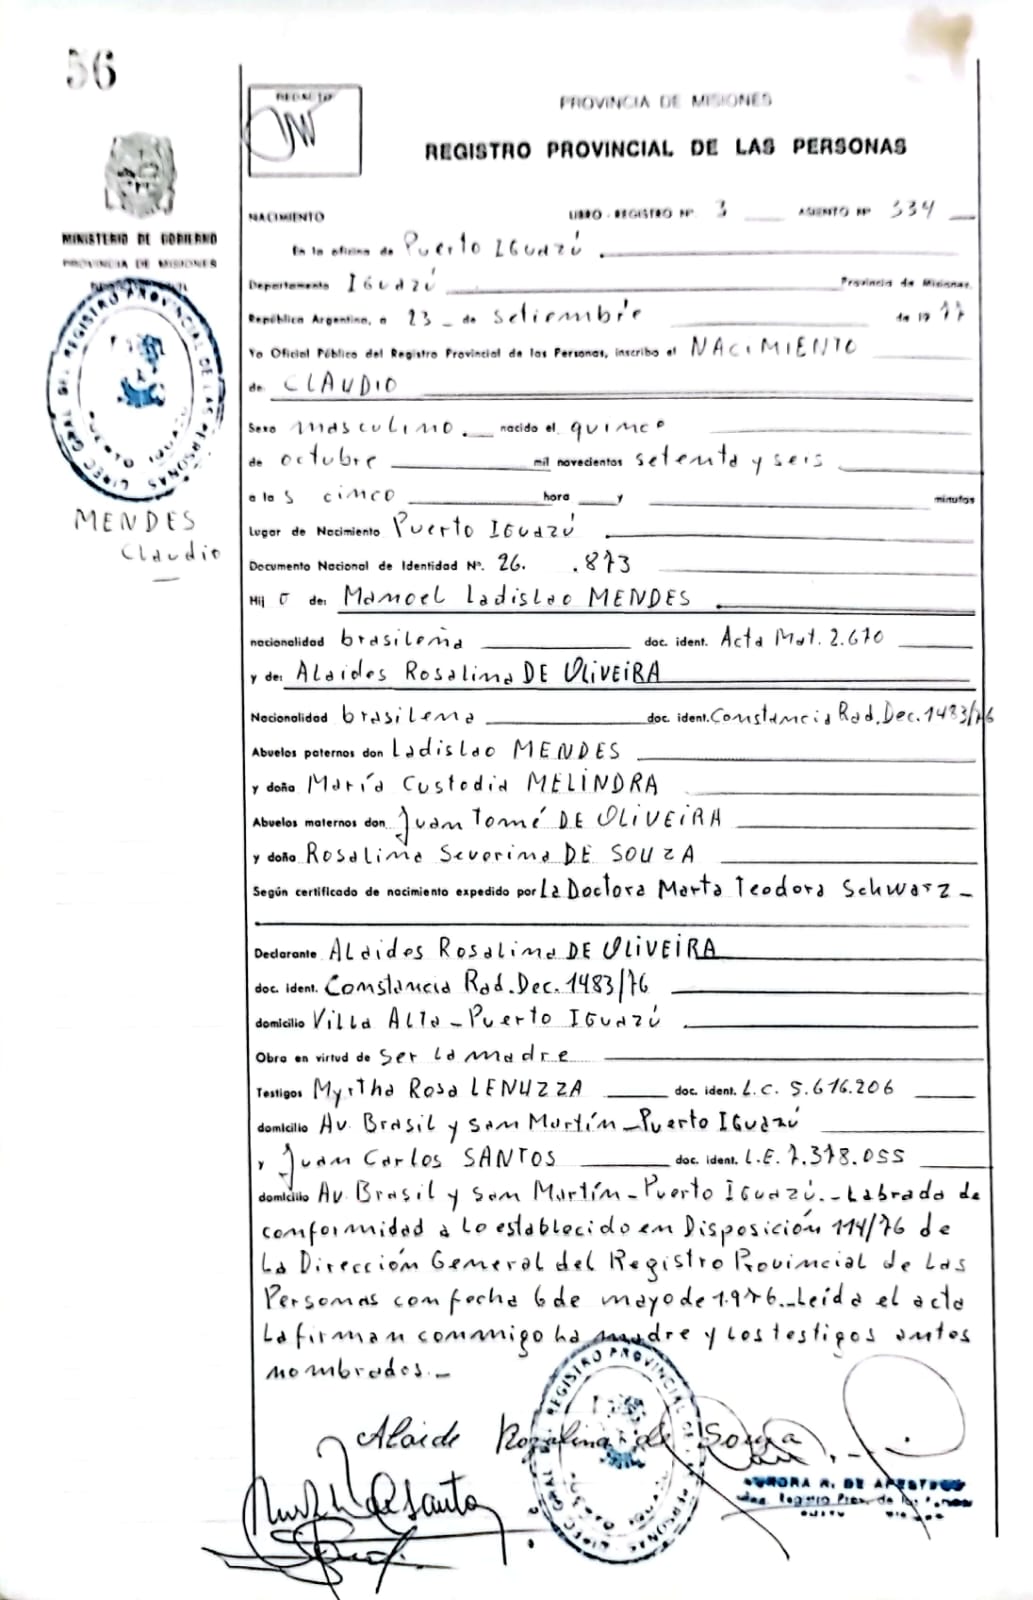 56
REDACTO
PROVINCIA DE MISIONES
REGISTRO PROVINCIAL DE LAS PERSONAS
MINISTERIO DE GOBIERNO
PROVINCIA DE MISIONES
REGISTRO PROVINCIAL DE LAS PERSONAS
MENDES
Claudio
NACIMIENTO LIBRO - REGISTRO Nº 3 ASIENTO Nº 334
En la oficina de Puerto IGuazú
Departamento IGuazú Provincia de Misiones.
República Argentina, a 23 - de Setiembre de 19 77
Yo Oficial Público del Registro Provincial de las Personas, inscribo el NACIMIENTO
de CLAUDIO
Sexo masculino. nacido el quince
de octubre mil novecientos setenta y seis
a las cinco hora y minutos
Lugar de Nacimiento Puerto IGuazú
Documento Nacional de Identidad Nº. 26. .873
Hij o de: Manoel Ladislao MENDES
nacionalidad brasileña doc. ident. Acta Mat. 2.670
y de: Alaides Rosalina DE OLIVEIRA
Nacionalidad brasilena doc. ident. Constancia Rad. Dec. 1483/76
Abuelos paternos don Ladislao MENDES
y doña María Custodia MELINDRA
Abuelos maternos don Juan Tomé DE OLIVEIRA
y doña Rosalina Severina DE SOUZA
Según certificado de nacimiento expedido por La Doctora Marta Teodora Schwarz -
Declarante Alaides Rosalina DE OLIVEIRA
doc. ident. Constancia Rad. Dec. 1483/76
domicilio Villa Alta - Puerto IGuazú
Obra en virtud de ser la madre
Testigos Myrtha Rosa LENUZZA doc. ident. L.C. 5.616.206
domicilio Av. Brasil y San Martín - Puerto IGuazú
y Juan Carlos SANTOS doc. ident. L.E. 7.378.055
domicilio Av. Brasil y San Martín - Puerto IGuazú. - Labrada de
conformidad a lo establecido en Disposición 114/76 de
La Dirección General del Registro Provincial de Las
Personas con fecha 6 de mayo de 1.976. - Leída el acta
La firman conmigo la madre y los testigos antes
nombrados. -
REGISTRO PROVINCIAL DE LAS PERSONAS
Alaide Rosalina de Souza
AURORA R. DE